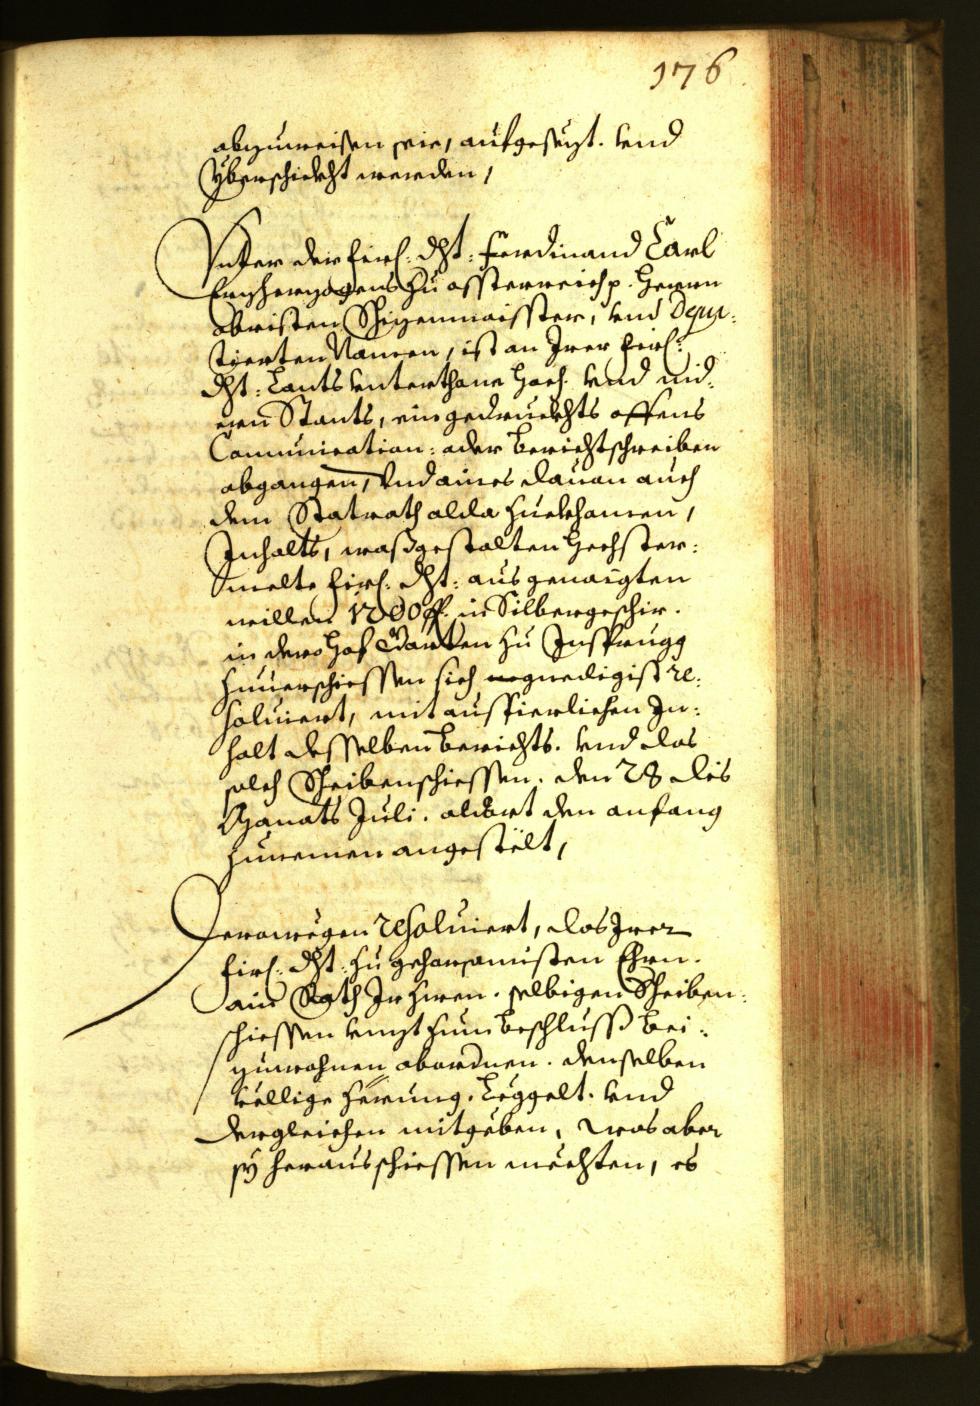 176
abzuweisen seie, aufgesezt. vnd
yberschickht werden,
Vnter der fürl: dht: Ferdinand Carl
Erzherzogens zu össterreich p. Herrn
obristen Schizenmaisster, vnd Depu-
tierten Namen, ist an Irer fürl:
dht: Lants vnterthane hoch. vnd nid-
ern Stants, ein gedruckhts offens
Comunication: oder Berichtschreiben
abgangen, vnd aines dauon auch
dem Statrath alda zuekhomen,
Inhalts, wasgestalten hechster-
melte fürl: dht: aus genaigten
willen 1200 fl. in Silbergeschir.
in dero Hof Garten zu Insprugg
zuuerschiessen sich gnedigist re-
soluiert, mit ausfierlichen In-
halt desselben Berichts. vnd das
solch Scheibenschiessen. den 28 dis
Monats Juli. aldort den anfang
zunemen angestelt,
Derowegen resoluiert, das Irer
fürl: dht: zu gehorsamisten Ehrn.
ain Rath Ir zwen. selbigen Scheiben-
schiessen vnzt zum Beschluss bei-
zuwohnen abordnen. denselben
völlige Zörung. Leggelt. vnd
dergleichen mitgeben, was aber
sy herausschiessen mechten, es